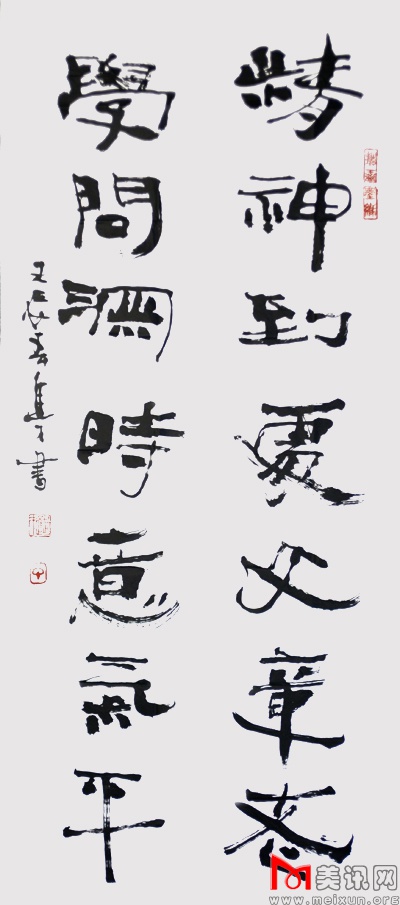 精神到處文章老
學問深時意氣平
書
美讯网
www.meixun.org